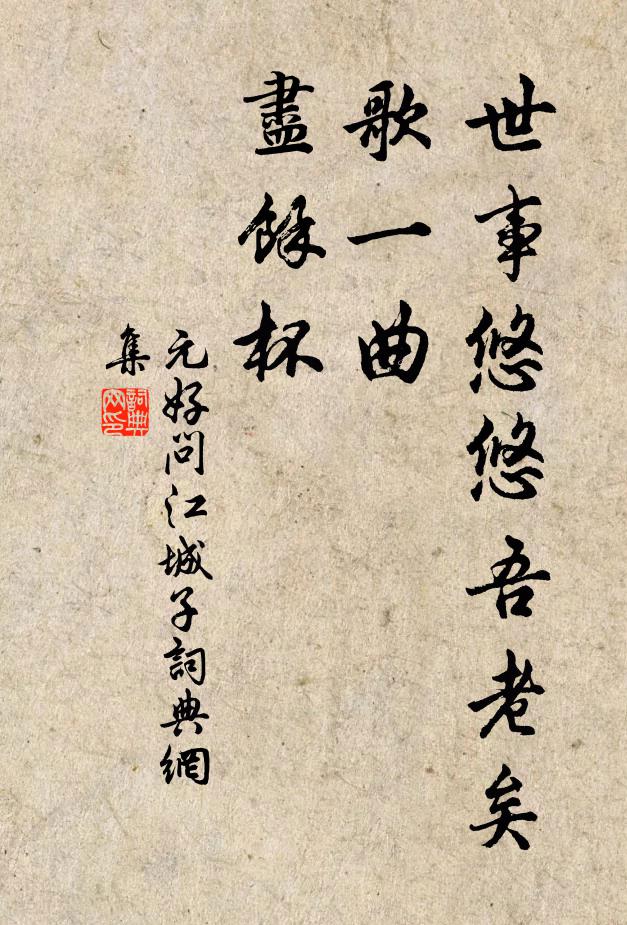 世事悠悠吾老矣
歌一曲
盡餘杯
元好問江城子詞典網
集
詞典網印